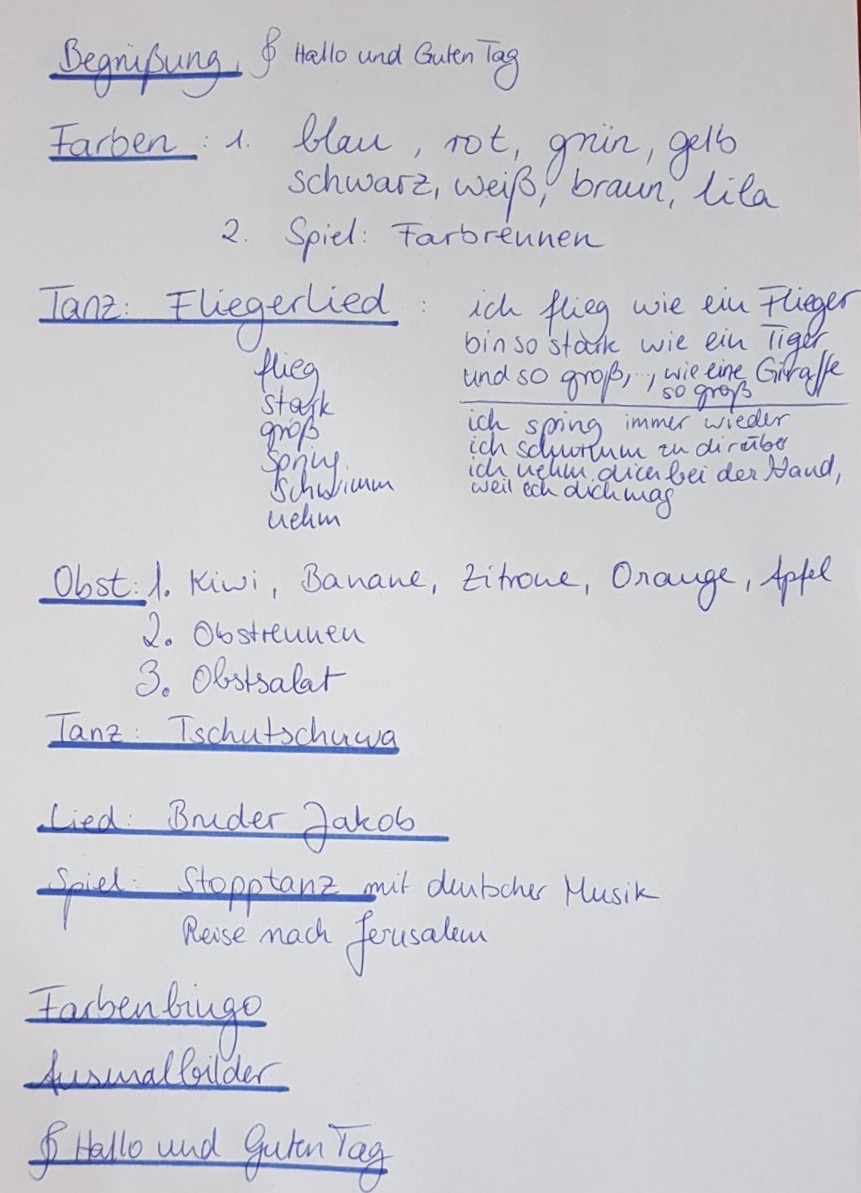 Begrüßung, 𝄞 Hallo und Guten Tag
Farben : 1. blau, rot, grün, gelb
schwarz, weiß, braun, lila
2. Spiel: Farbrennen
Tanz: Fliegerlied : ich flieg wie ein Flieger
bin so stark wie ein Tiger
und so groß, .., wie eine Giraffe
so groß
flieg
stark
groß
spring
schwimm
nehm
ich spring immer wieder
ich schwimm zu dir rüber
ich nehm dich bei der Hand,
weil ich dich mag
Obst: 1. Kiwi, Banane, Zitrone, Orange, Apfel
2. Obstrennen
3. Obstsalat
Tanz: Tschutschuwa
Lied: Bruder Jakob
Spiel: Stopptanz mit deutscher Musik
Reise nach Jerusalem
Farbenbingo
Ausmalbilder
𝄞 Hallo und Guten Tag